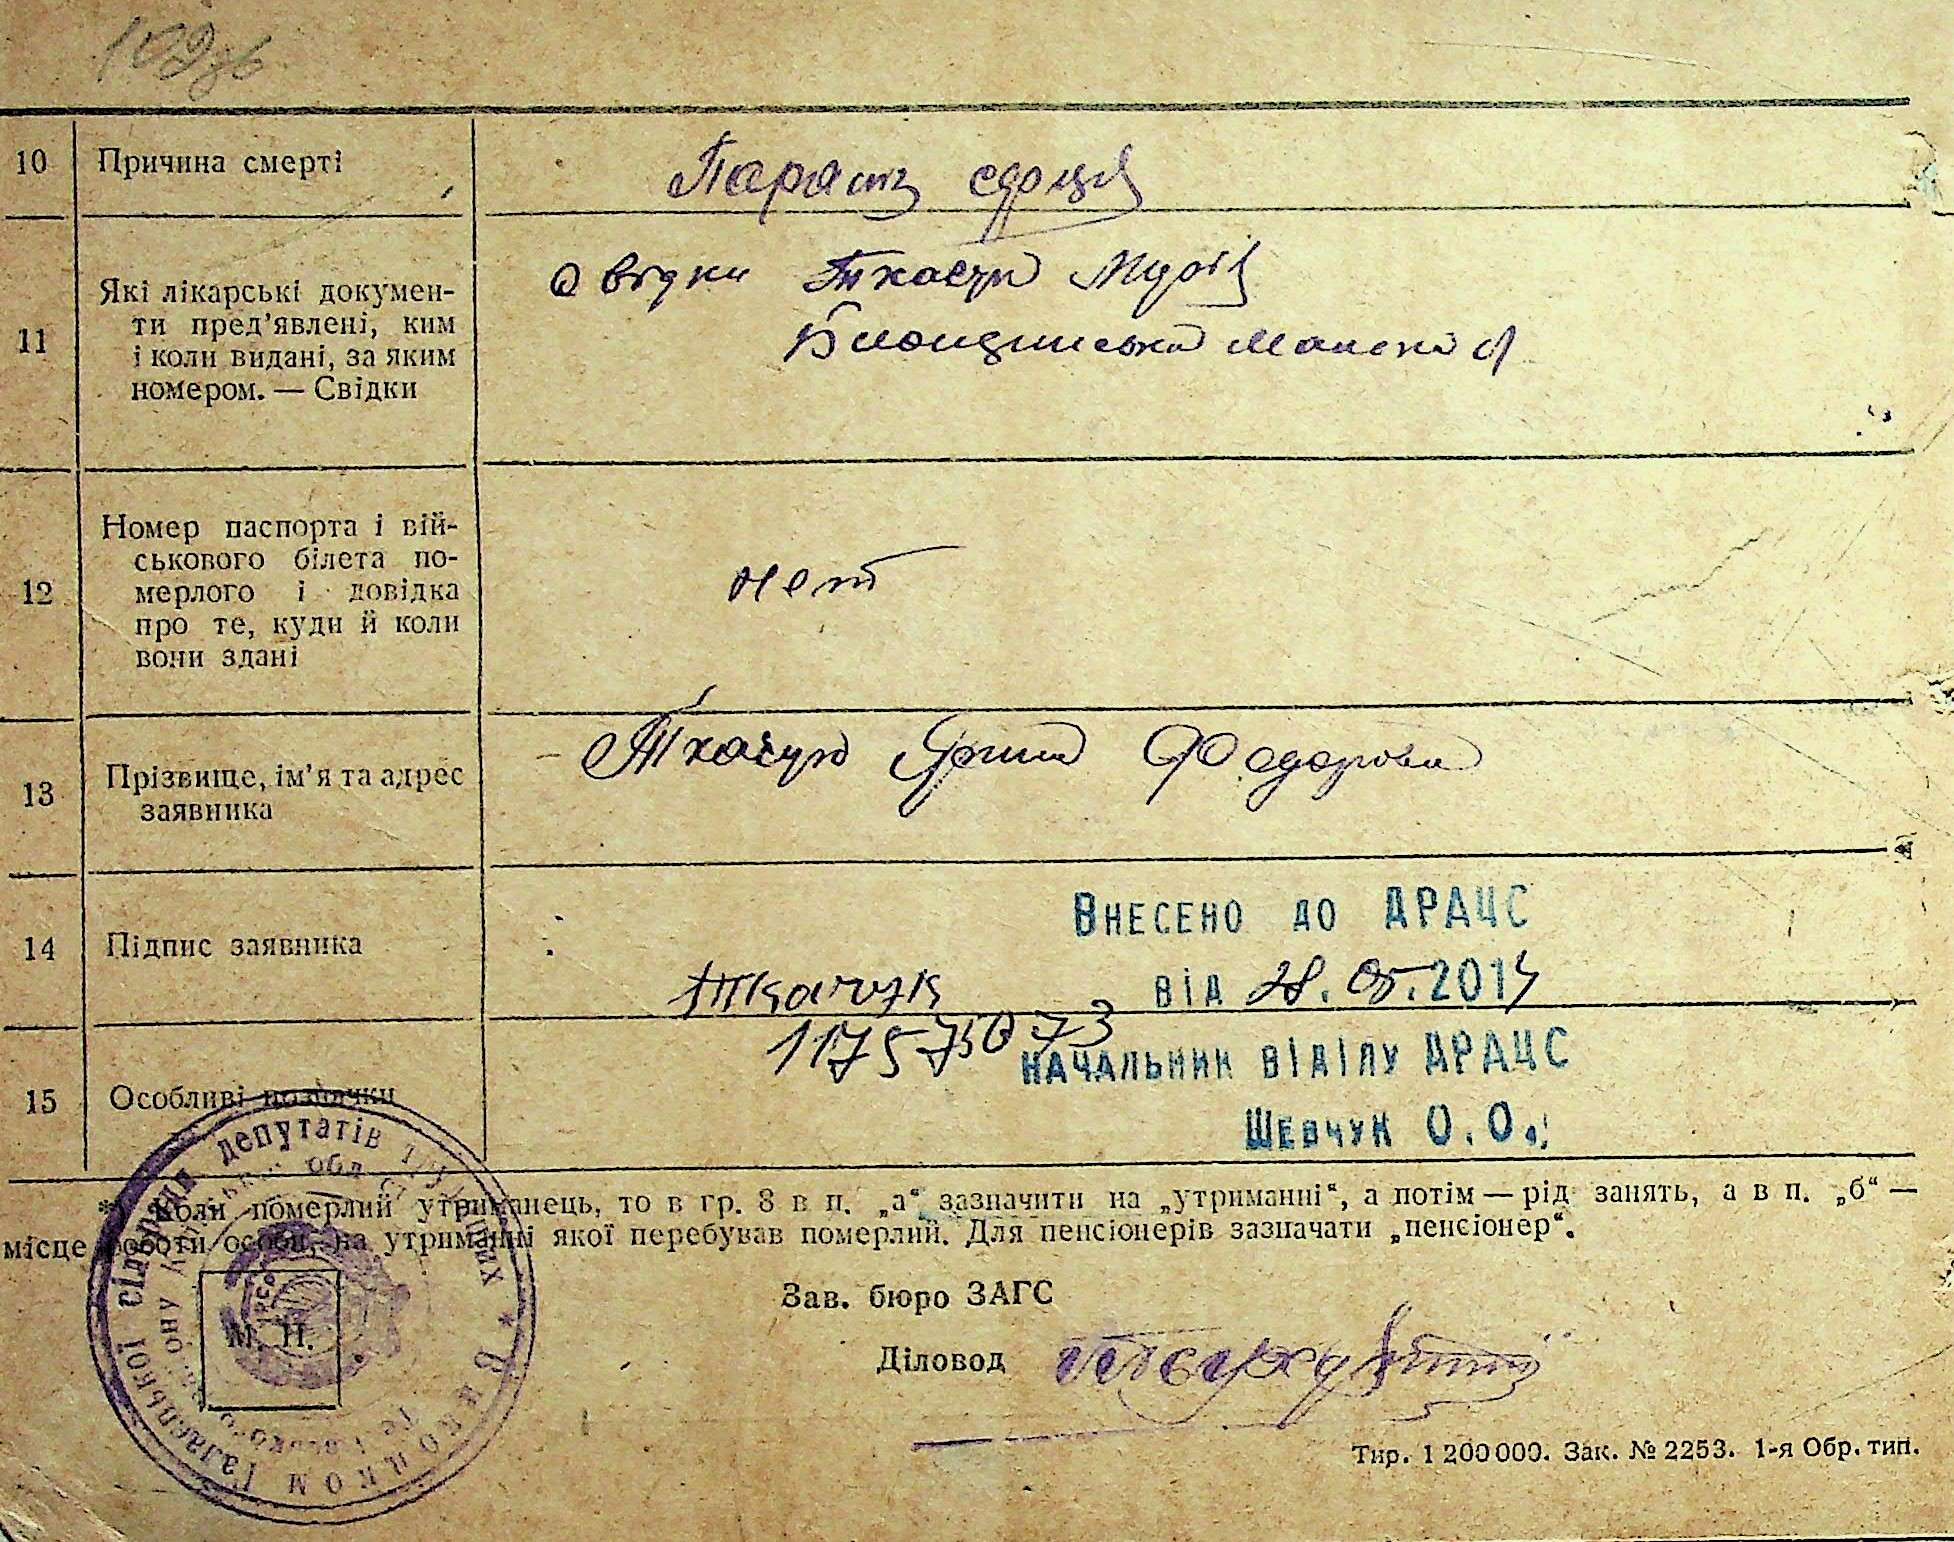 10 Причина смерті
Параліч сердця
11 Які лікарські докумен-
ти пред’явлені, ким
і коли видані, за яким
номером. — Свідки
свідки Ткачук
12 Номер паспорта і вій-
ськового білета по-
мерлого і довідка
про те, куди й коли
вони здані
нет
13 Прізвище, ім’я та адрес
заявника
Ткачук Ярина Федоровна
14 Підпис заявника
Ткачук
Внесено до ДРАЦС
від 28.05.2014
15 Особливі позначки
начальник відділу ДРАЦС
Шевчук О.О.
* Коли померлий утриманець, то в гр. 8 в п. „а“ зазначити на „утриманні“, а потім — рід занять, а в п. „б“ —
місце роботи особи, на утриманні якої перебував померлий. Для пенсіонерів зазначати „пенсіонер“.
Зав. бюро ЗАГС
М. П.
Діловод
сільради депутатів трудящих * Виконком
Тир. 1 200 000. Зак. № 2253. 1-я Обр. тип.